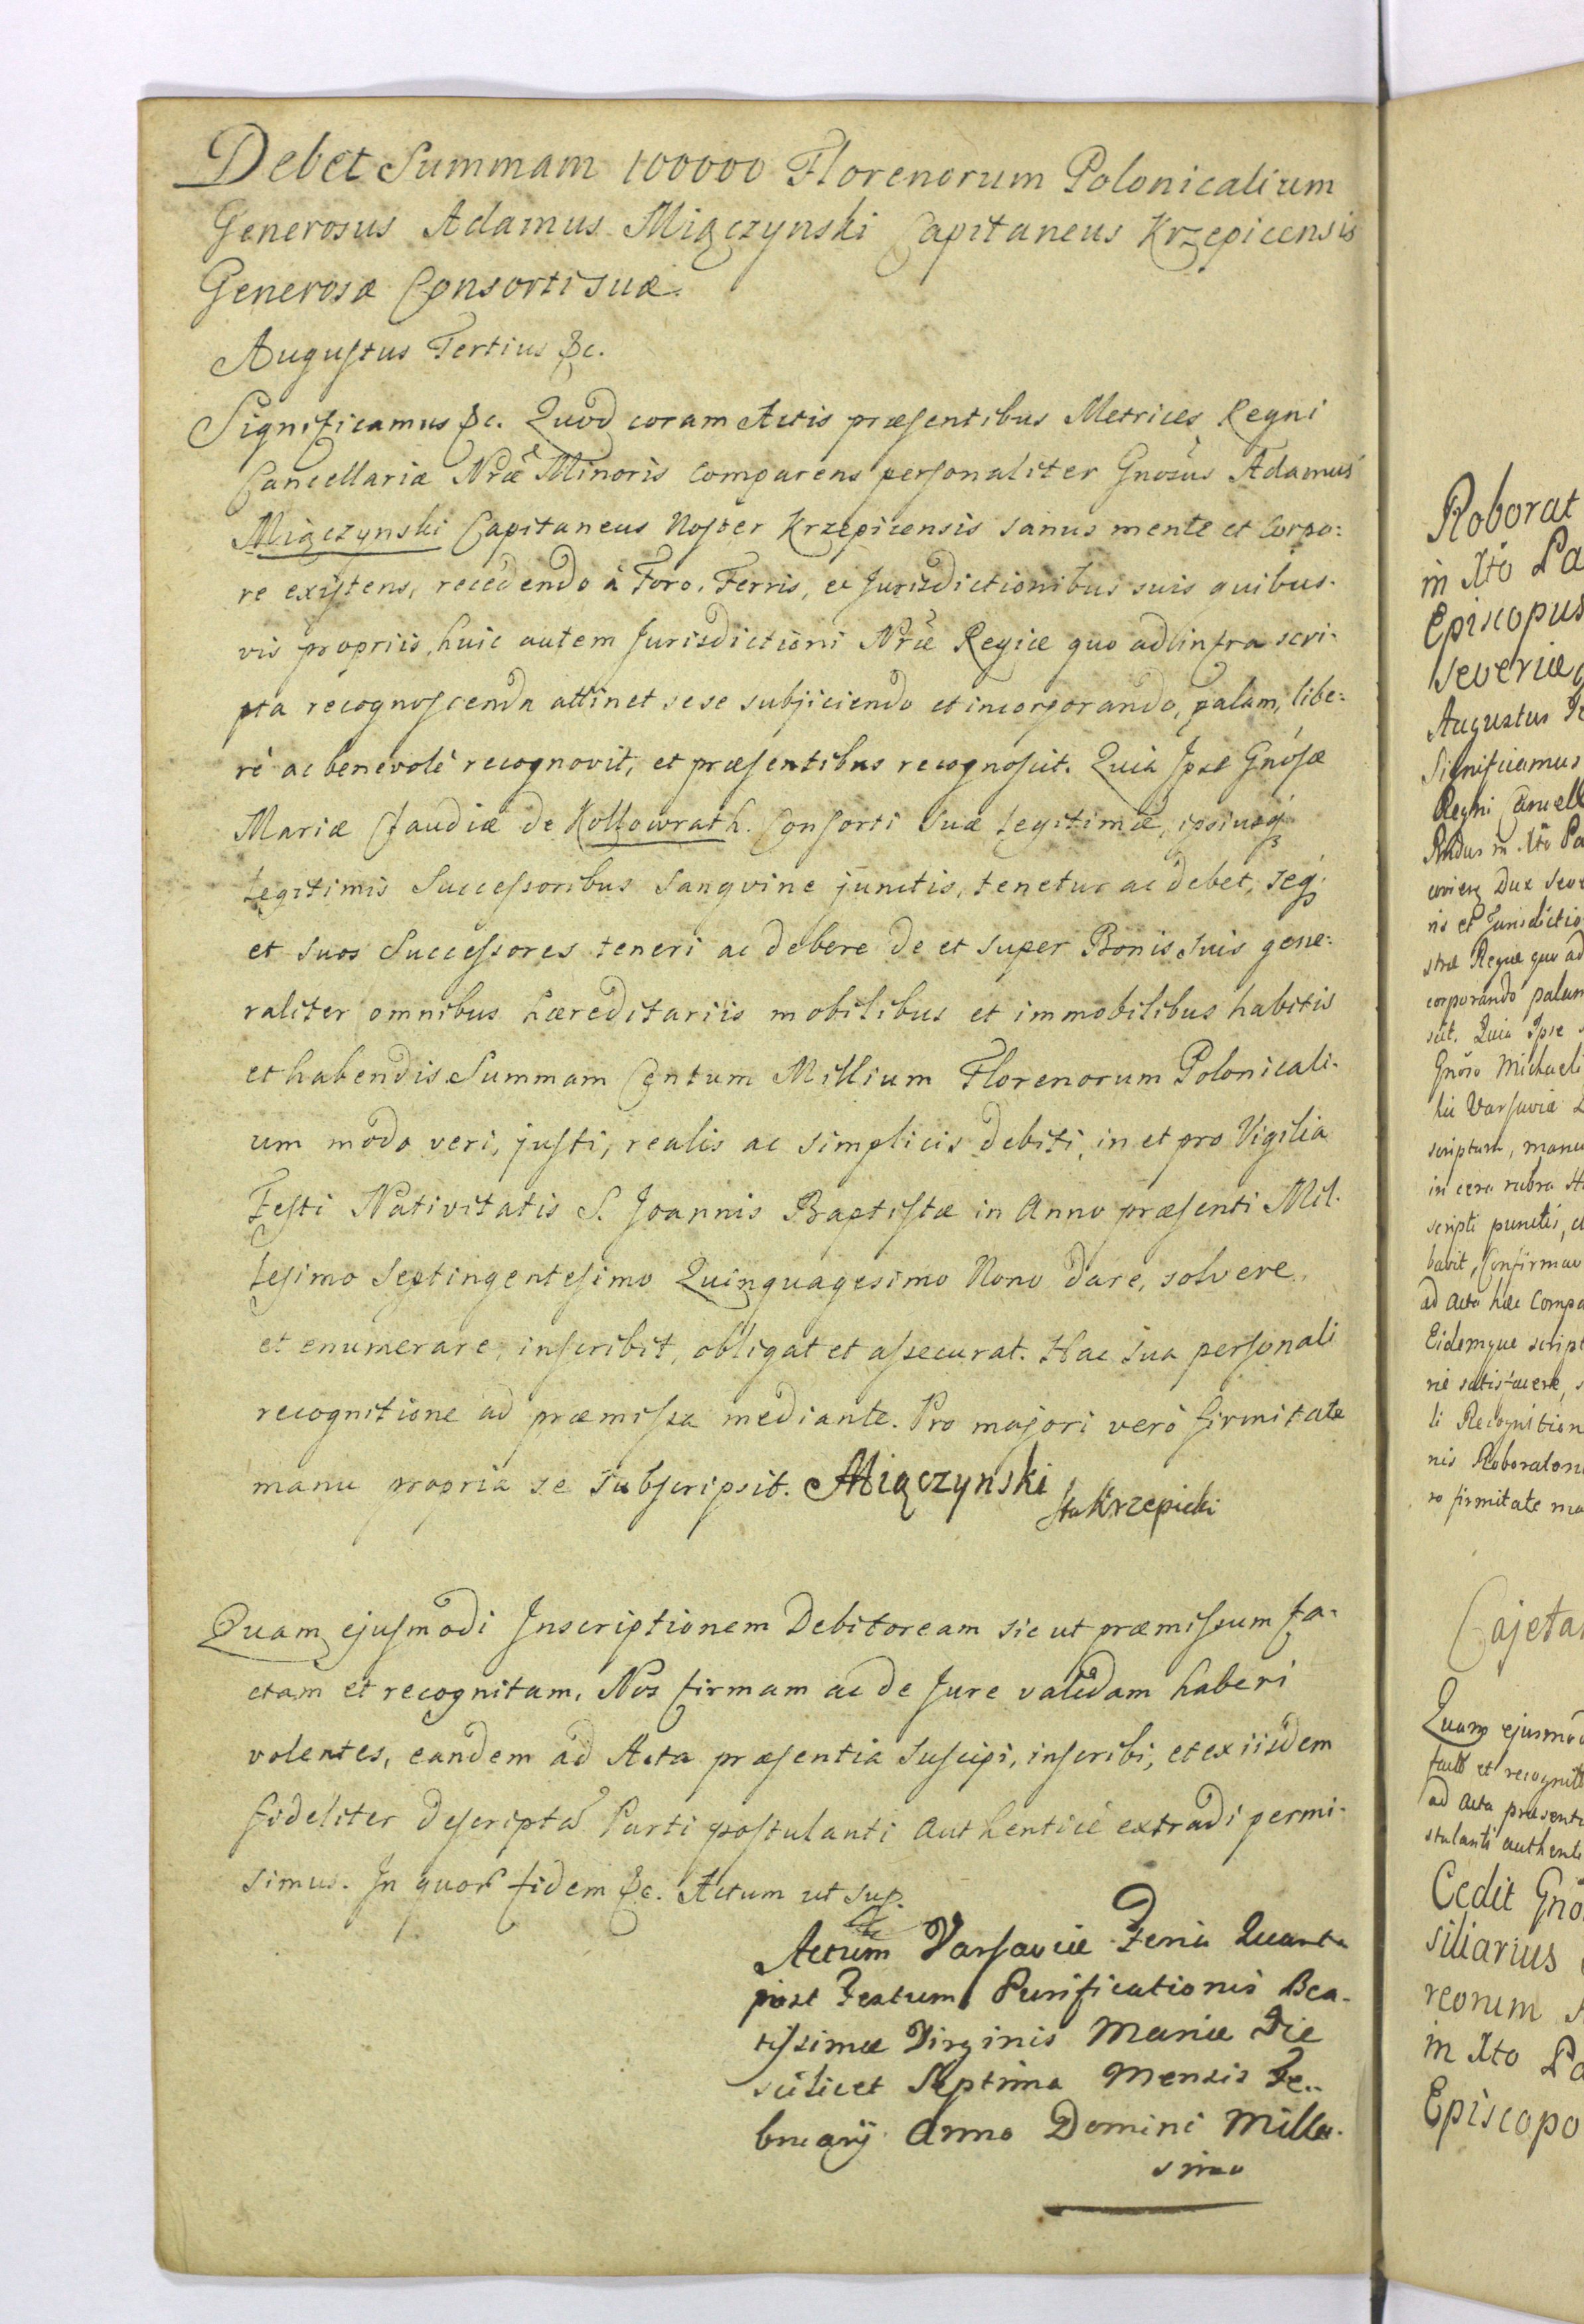 Debet Summam 100000 Florenorum Polonicalium
Generosus Adamus Miączynski Capitaneus Krzepicensis
Generosæ Consorti suæ.
Augustus Tertius &c.
Significamus &c. Quod coram Actis præsentibus Metrices Regni
Cancellariæ Nræ Minoris comparens personaliter Gnosus Adamus
Miączynski Capitaneus Noster Krzepicensis sanus mente et Corpo:
re existens, recedendo à Foro, Terris, et Jurisdictionibus suis quibus-
vis propriis, huic autem Jurisdictioni Nræ Regiæ quo ad infra scri-
pta recognoscenda attinet sese subjiciendo et incorporando, palam, libe:
rè ac benevolè recognovit, et præsentibus recognoscit. Quia Ipse Gnosæ
Mariæ Claudiæ de Kollowrath. Consorti suæ Legitimæ, ipsiusq;
Legitimis Successoribus Sangvine junctis, tenetur ac debet, seq;
et suos Successores teneri ac debere de et super Bonis suis gene:
raliter omnibus hæreditariis mobilibus et immobilibus habitis
et habendis Summam Centum Millium Florenorum Polonicali-
um modo veri, justi, realis ac simplicis debiti, in et pro Vigilia
Festi Nativitatis S. Joannis Baptistæ in Anno præsenti Mil-
lesimo Septingentesimo Quinquagesimo Nono dare, solvere
et enumerare, inscribit, obligat et assecurat. Hac sua personali
recognitione ad præmissa mediante. Pro majori verò firmitate
manu propria se subscripsit. AMiączynski
Sta Krzepicki
Quam ejusmodi Inscriptionem Debitoream sic ut præmissum fa-
ctam et recognitam, Nos firmam ac de Jure validam haberi
volentes, eandem ad Acta præsentia suscipi, inscribi, et ex iisdem
fideliter descriptã Parti postulanti authenticè extradi permi-
simus. In quor fidem &c. Actum ut sup.
Actum Varsaviæ Feria Quarta
post Festum Purificationis Bea-
tissimæ Virginis Mariæ Die
scilicet Septima Mensis Fe-
bruarij Anno Domini Mille-
simo
Roborat
in Xto Pa
Episcopus
Severiæ
Augustus Te
Significamus
Regni Cancell
Rndus in Xto Pa
Dux Seve
ris et Jurisdictio
stræ Regiæ quo ad
corporando palam
scit. Quia Ipse
Gnoso Michaeli
Varsaviæ
scriptum, manu
in cera rubra
scripti punctis, et
bavit, Confirmav
ad Acta hæc Compa
Eidemque script
rie satisfacere, s
li Recognition
nis Roboration
ro firmitate ma
Cajetan
Quam ejusmod
factã et recognitã
ad Acta præsenti
stulanti authenti
Cedit Gno
siliarius
reorum
in Xto Pa
Episcopo